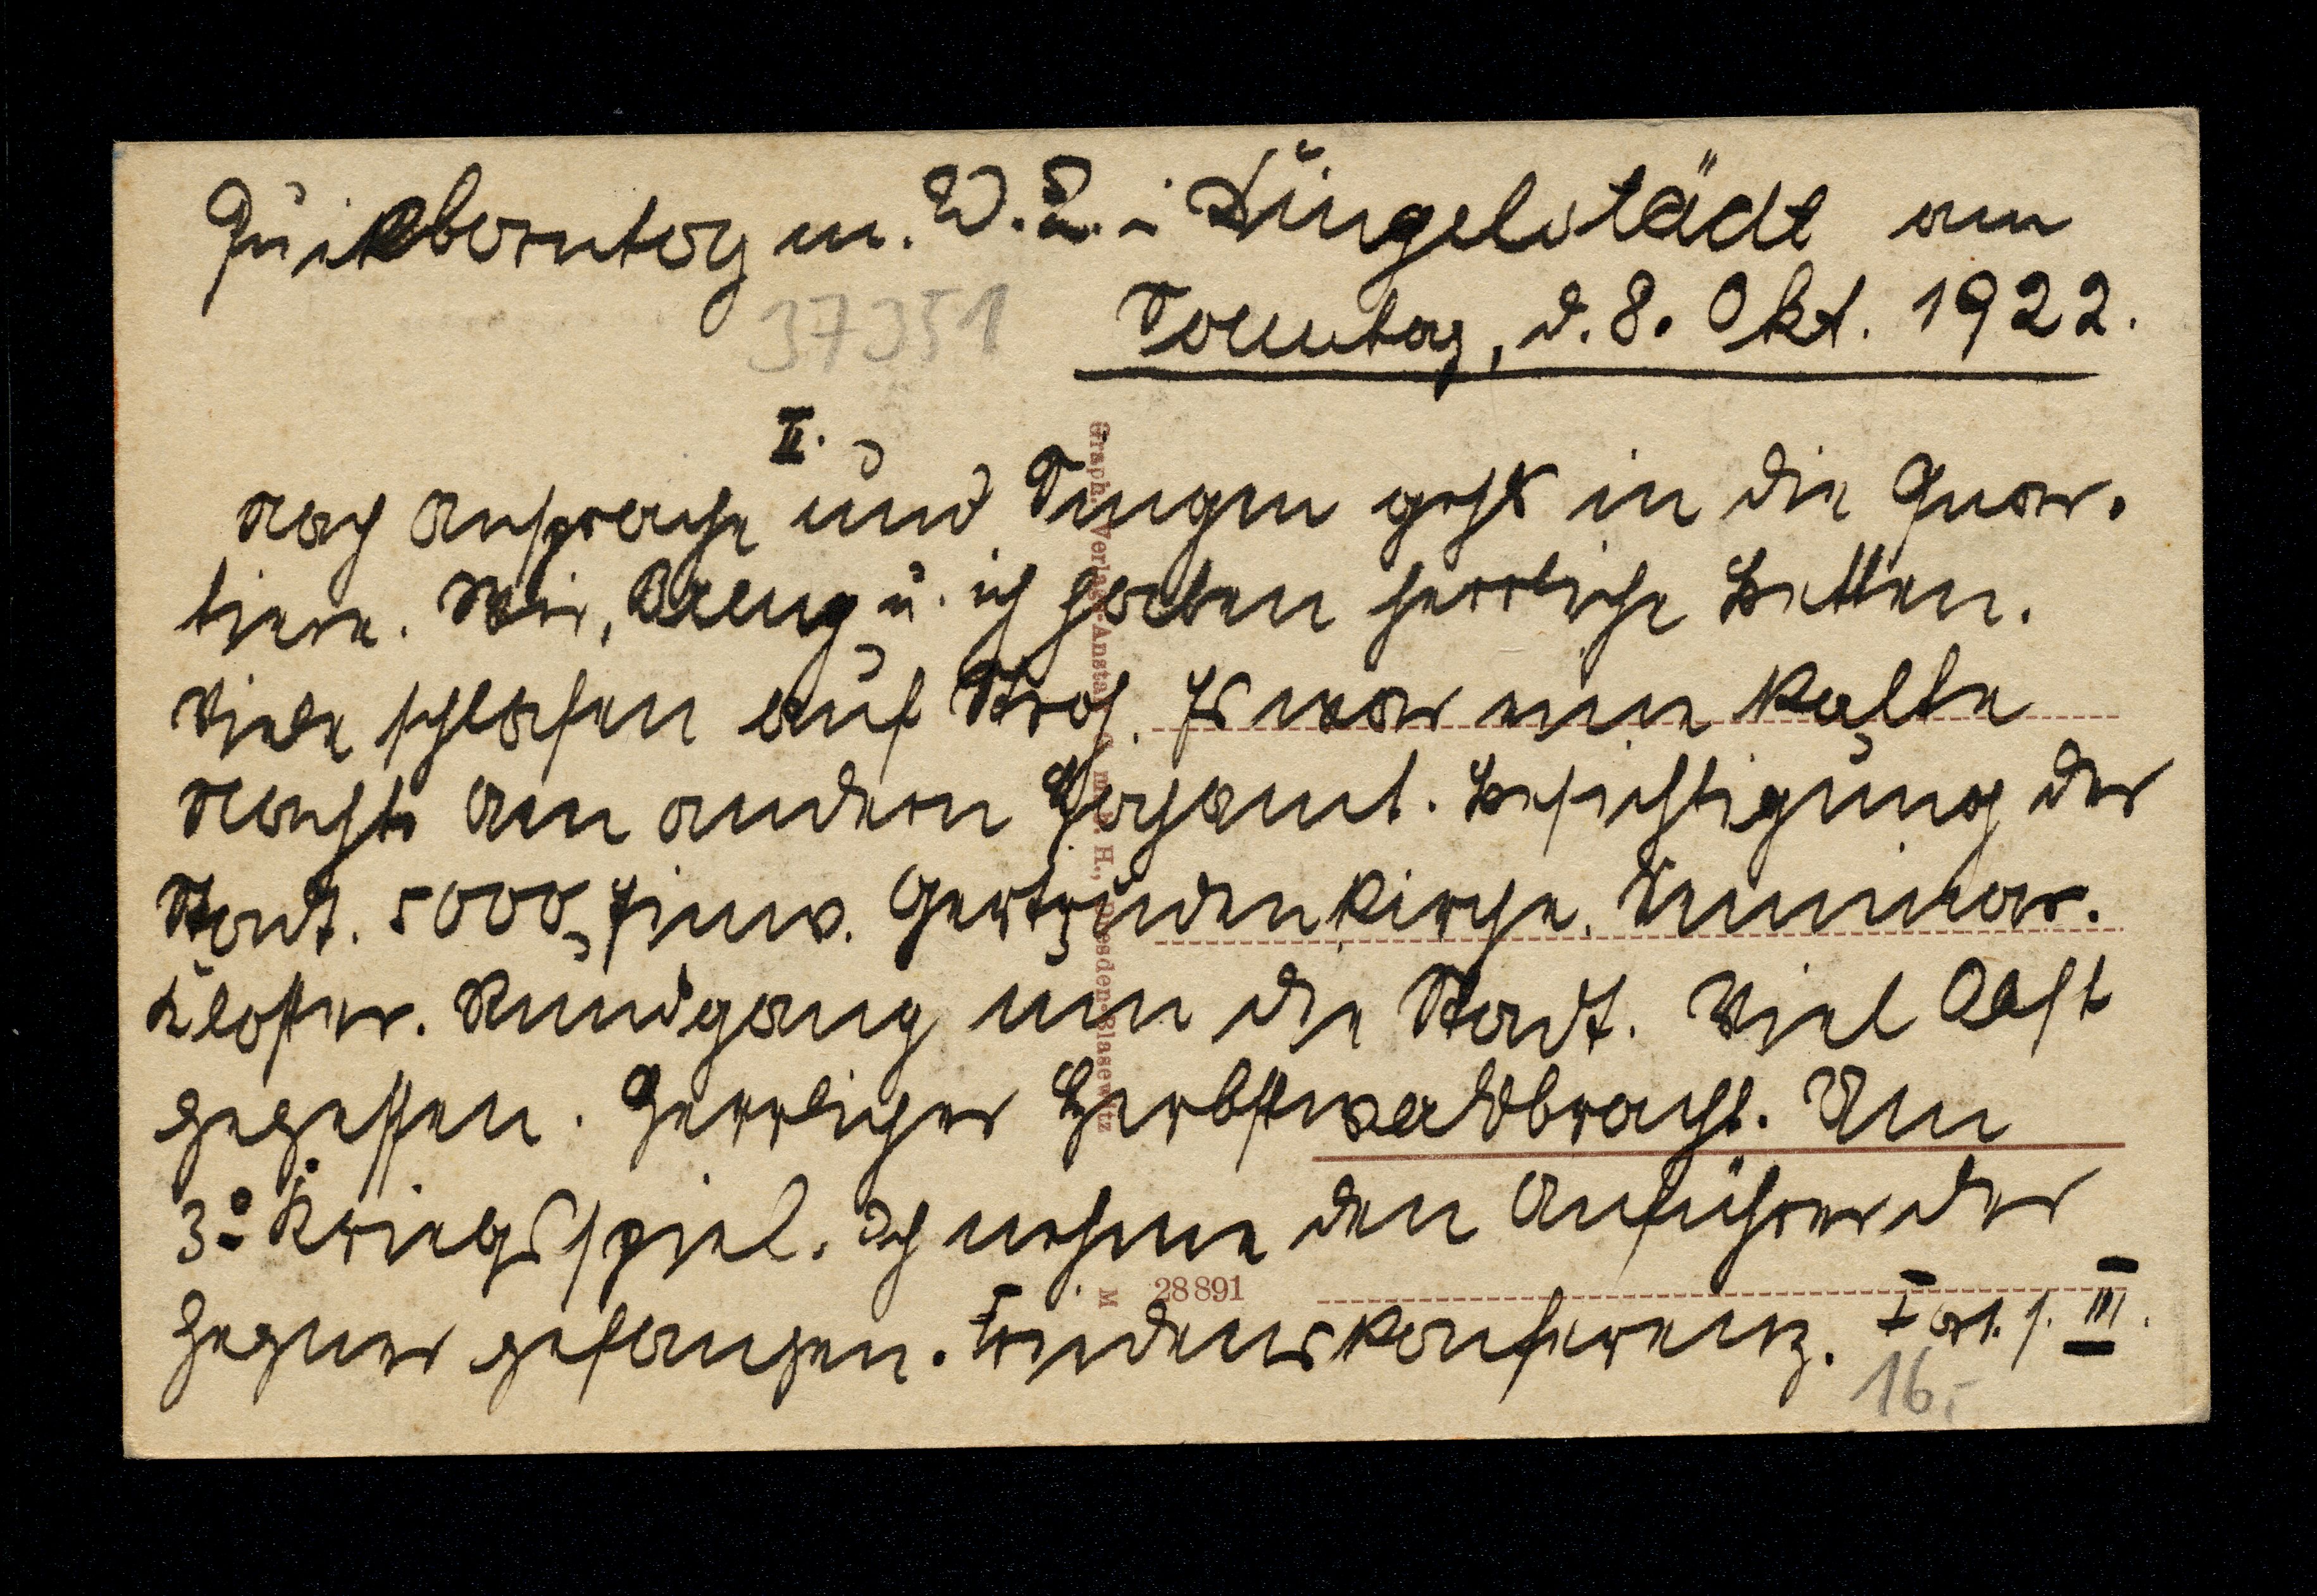 Quickborntag m. W.L. i Düngelstädt am
37351
Sonntag, d. 8. Okt. 1922.
II.
Nach Ansprache und Singen gehts in die Quar-
tiere. Wir, u. ich haben herrliche Betten.
Viele schlafen auf Stroh. Es war eine kalte
Nacht. Am andern Hochamt. Besichtigung der
Stadt. 5000 Einw. Gertrudenkirche. Seminar.
Kloster. Rundgang um die Stadt. Viel Obst
gegessen. Herrlicher Herbstwaldbracht. Um
3° Kriegsspiel. Ich nehme den Anführer der
Gegner gefangen. Friedenskonferenz. s. III.
16,-
Graph. Verlags-Anstalt G. m. b. H., Dresden-Blasewitz
M 28891